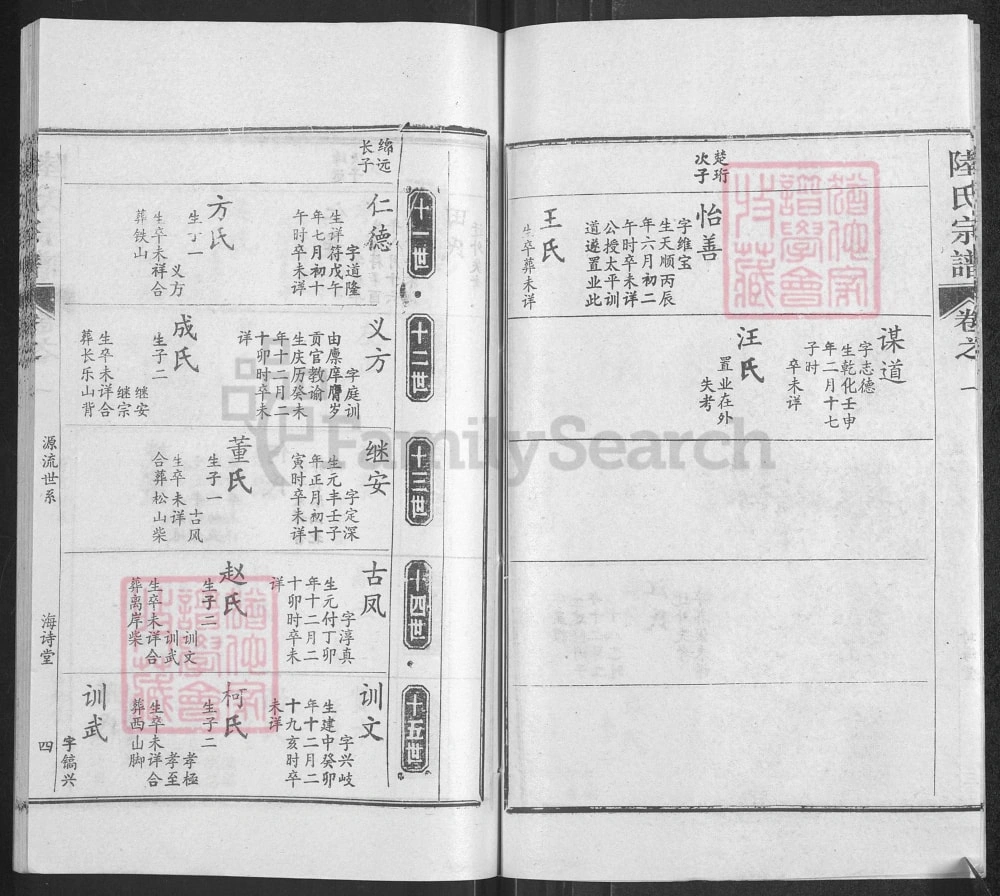 陸氏宗譜
卷之一
楚珩
次子
怡善
字维宝
生天顺丙辰
年六月初二
午时卒未详
公授太平训
道遂置业此
王氏
生卒葬未详
谋道
字志德
生乾化壬申
年二月十七
子时
卒未详
汪氏
置业在外
失考
十一世
十二世
十三世
十四世
十五世
绵远
长子
仁德
字道隆
生详符戊午
年七月初十
午时卒未详
方氏
生子一
义方
生卒未祥合
葬铁山
义方
字庭训
由廪庠膺岁
贡官教谕
生庆历癸未
年十二月二
十卯时卒未
详
成氏
生子二
继安
继宗
生卒未详合
葬长乐山背
继安
字定深
生元丰壬子
年正月初十
寅时卒未详
董氏
生子一
古风
生卒未详
合葬松山柴
古凤
字淳真
生元付丁卯
年十二月二
十卯时卒未
详
赵氏
生子二
训文
训武
生卒未详合
葬离岸柴
训文
字兴岐
生建中癸卯
年十二月二
十九亥时卒
未详
柯氏
生子二
孝極
孝至
生卒未详合
葬西山脚
训武
字镐兴
源流世系
海诗堂
四
FamilySearch